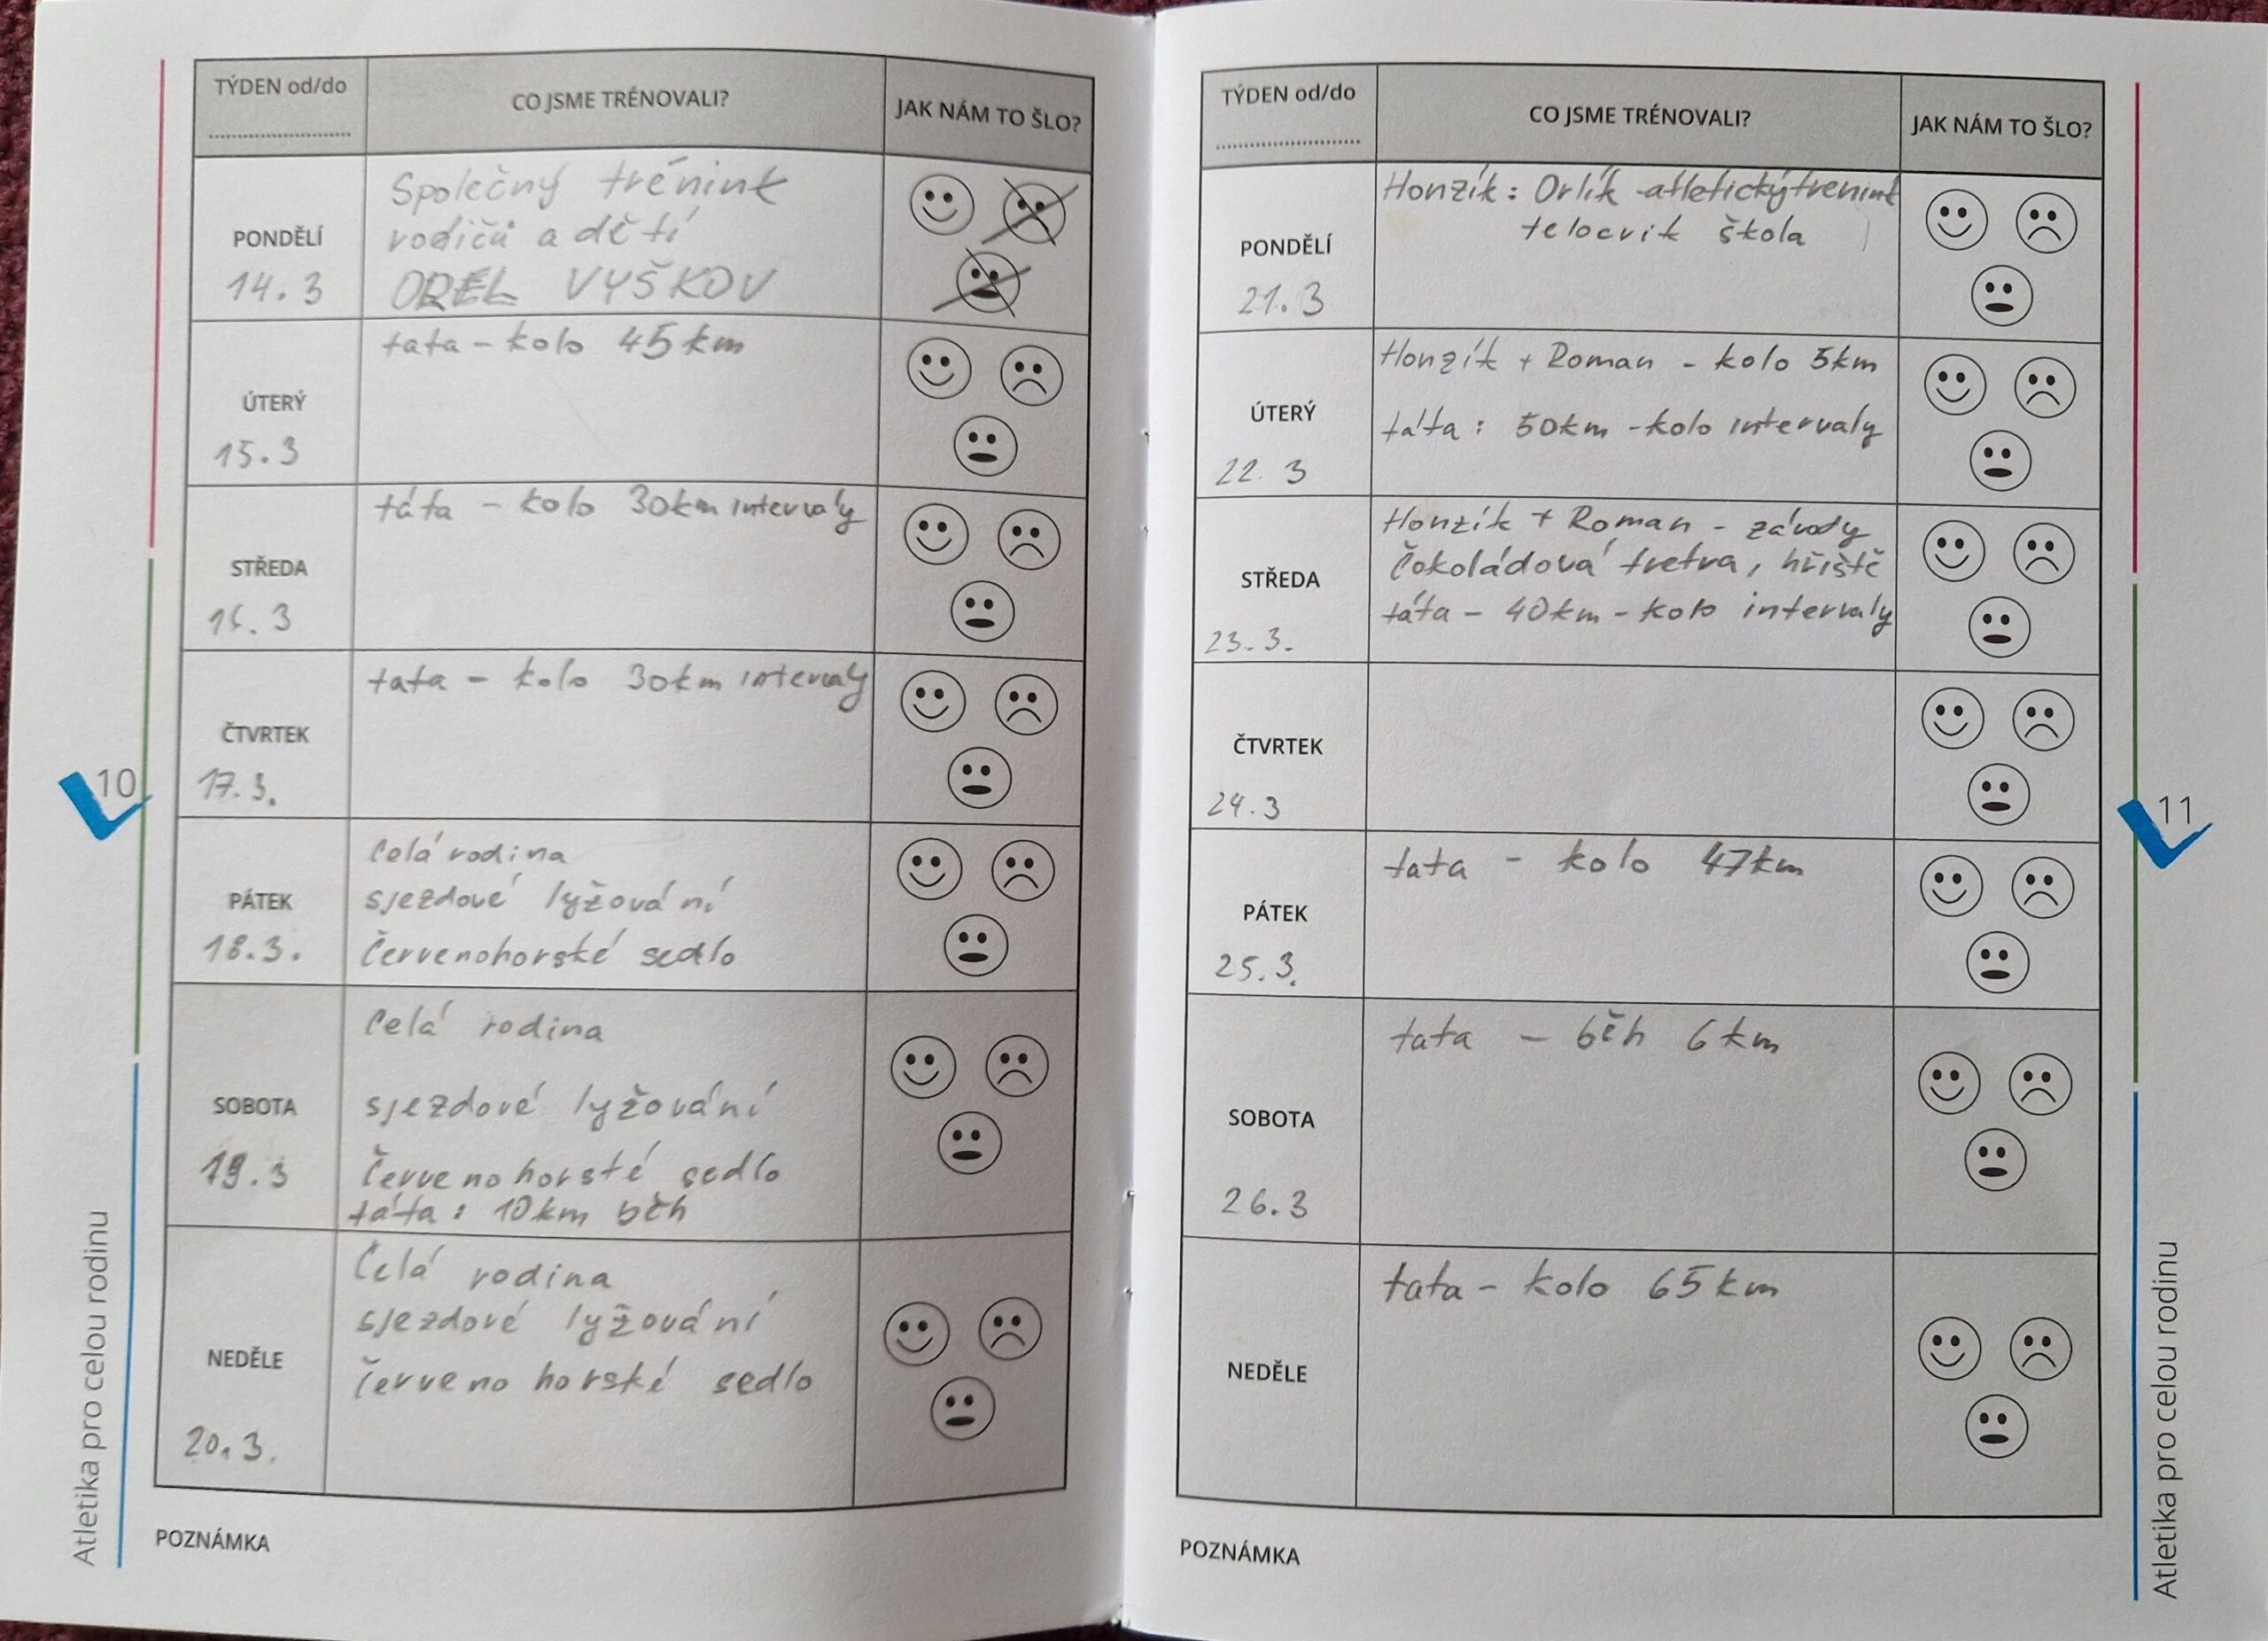 TÝDEN od/do
CO JSME TRÉNOVALI?
JAK NÁM TO ŠLO?
PONDĚLÍ
14.3
Společný trénink
rodičů a dětí
OREL VYŠKOV
ÚTERÝ
15.3
tata - kolo 45km
STŘEDA
16.3
táta - kolo 30km intervaly
ČTVRTEK
17.3.
tata - kolo 30km intervaly
PÁTEK
18.3.
Celá rodina
sjezdové lyžování
Červenohorské sedlo
SOBOTA
19.3
Celá rodina
sjezdové lyžování
Červenohorské sedlo
táta: 10km běh
NEDĚLE
20.3.
Celá rodina
sjezdové lyžování
červenohorské sedlo
POZNÁMKA
10
Atletika pro celou rodinu
TÝDEN od/do
CO JSME TRÉNOVALI?
JAK NÁM TO ŠLO?
PONDĚLÍ
21.3
Honzík: Orlík -atletický trenink
telocvik škola
ÚTERÝ
22. 3
Honzík + Roman - kolo 5km
táta: 50km -kolo intervaly
STŘEDA
23.3.
Honzík + Roman - závody
Čokoládová tretra, hřiště
táta - 40km - kolo intervaly
ČTVRTEK
24.3
PÁTEK
25.3.
tata - kolo 47km
SOBOTA
26.3
tata - běh 6km
NEDĚLE
tata - kolo 65km
POZNÁMKA
11
Atletika pro celou rodinu